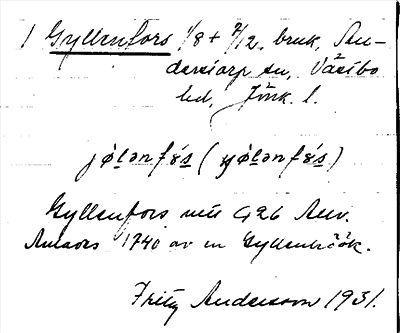 1 Gyllenfors 1/8 + 7/12, bruk, An-
derstorp sn, Västbo
hd, Jönk. l.
jø̀lənfɷ́s (yø̀lənfɷ́s)
Gyllenfors nu G 26 Anv.
1740 av en Gyllenhöök.
Fritz Andersson 1931.